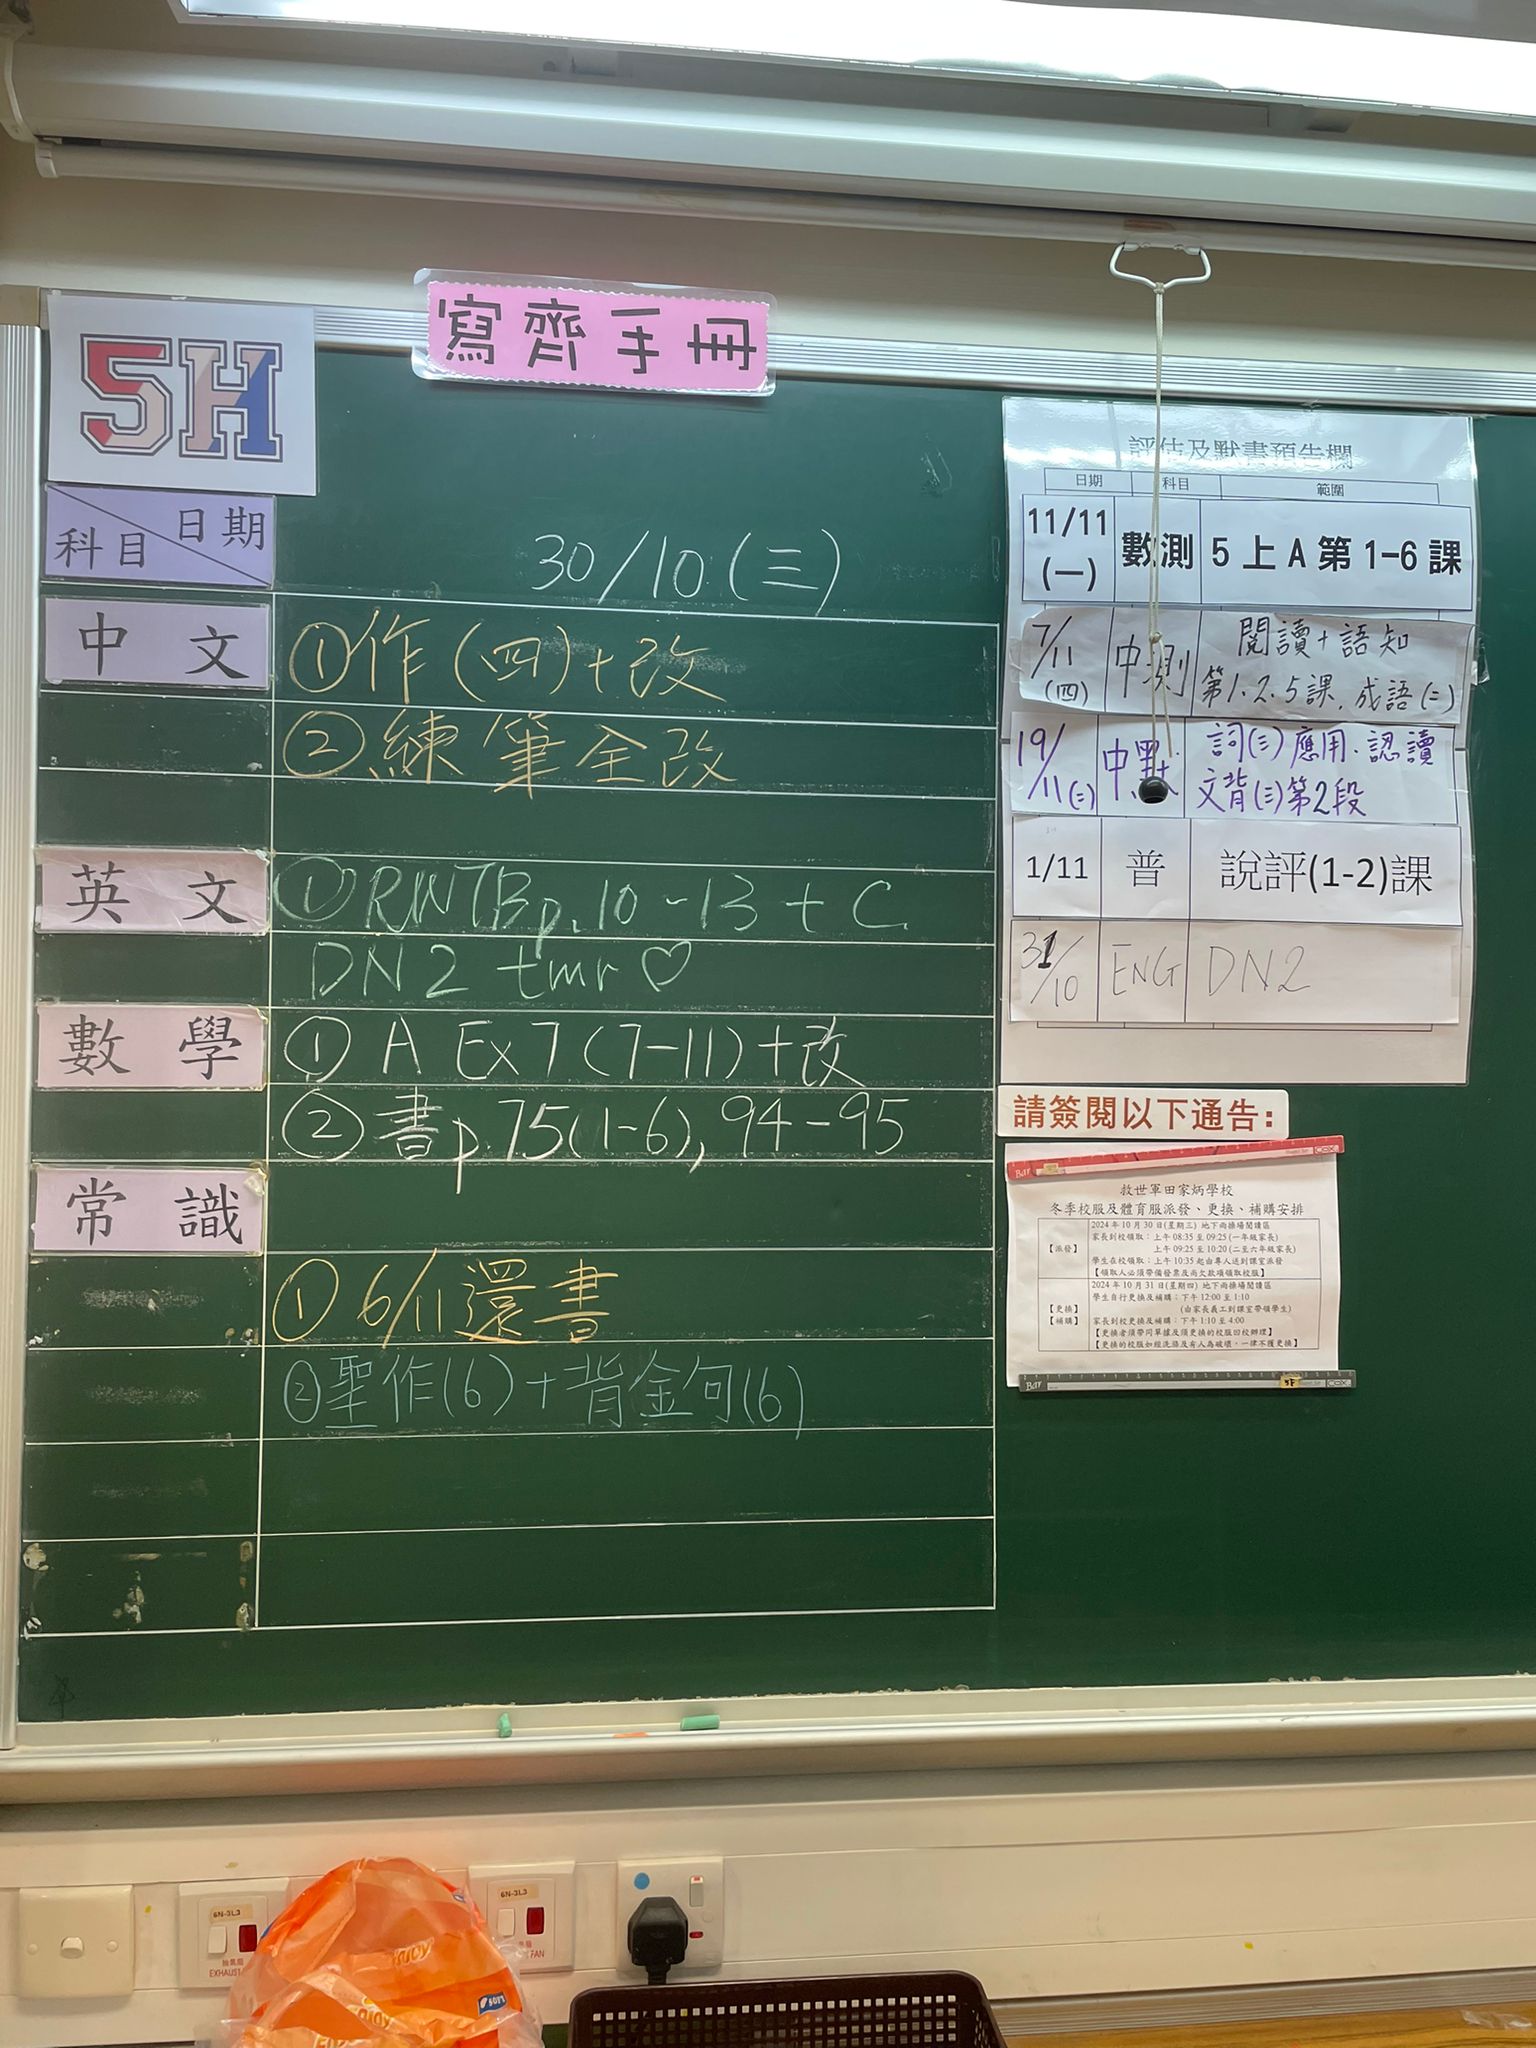 寫齊手冊
5H
日期
科目
30/10(三)
中文
①作(四)+改
②練筆全改
英文
①RWTB p.10-13 + C
DN2 tmr ♡
數學
① A Ex 7 (7-11)+改
②書p 75(1-6), 94-95
常識
① 6/11還書
②聖作(6)+背金句(6)
評估及默書預告欄
日期 科目 範圍
11/11 (一) 數測 5上A第1-6課
7/11 (四) 中測 閱讀+語知
第1.2.5課, 成語(二)
19/11(二) 中默 詞(三)應用.認讀
文背(三)第2段
1/11 普 說評(1-2)課
31/10 ENG DN2
請簽閱以下通告:
救世軍田家炳學校
冬季校服及體育服派發、更換、補購安排
【派發】
2024年10月30日(星期三) 地下雨操場閱讀區
家長到校領取:上午 08:35 至 09:25 (一年級家長)
上午 09:25 至 10:20 (二至六年級家長)
學生在校領取:上午 10:35 起由專人送到課室派發
【領取人必須帶備發票及尚欠款項領取校服】
【更換】
【補購】
2024年10月31日(星期四) 地下雨操場閱讀區
學生自行更換及補購:下午 12:00 至 1:10
(由家長義工到課室帶領學生)
家長到校更換及補購:下午 1:10 至 4:00
【更換者須帶同單據及須更換的校服回校辦理】
【更換的校服如經洗滌及有人為破壞,一律不獲更換】
Bar
COX
Bar
5F
COX
6N-3L3
抽氣扇
EXHAUST
6N-3L3
FAN
enjoy